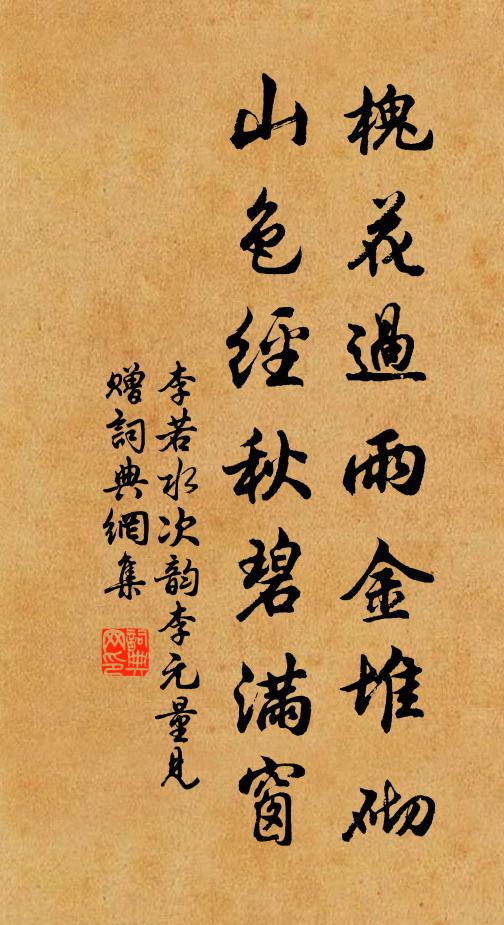 槐花過雨金堆砌
山色經秋碧滿窗
李若水次韵李元量見
贈詞典網集
詞典
网印